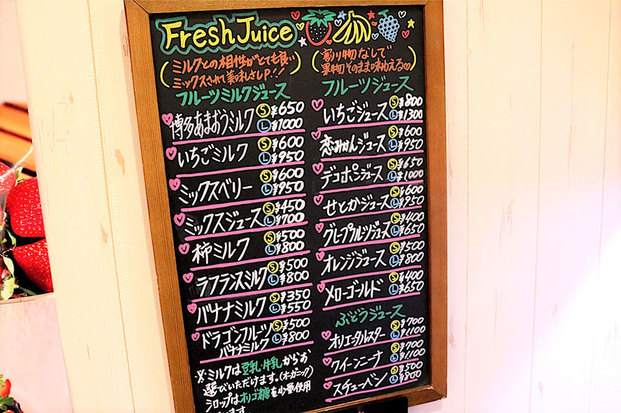 Fresh Juice
ミルクとの相性がとても良い
ミックスされて美味しさUP!!
フルーツミルクジュース
博多あまおうミルク S ¥650 L ¥1000
いちごミルク S ¥600 L ¥950
ミックスベリー S ¥600 L ¥950
ミックスジュース S ¥450 L ¥700
柿ミルク S ¥500 L ¥800
ラフランスミルク S ¥500 L ¥800
バナナミルク S ¥350 L ¥550
ドラゴンフルーツ
バナナミルク S ¥500 L ¥800
※ミルクは豆乳・牛乳からお
選びいただけます。(オーガニック)
シロップはオリゴ糖を少量使用
割り物なしで
果物そのままの味わえる
フルーツジュース
いちごジュース S ¥800 L ¥1300
恋みかんジュース S ¥600 L ¥950
デコポンジュース S ¥650 L ¥1000
せとかジュース S ¥600 L ¥950
グレープフルーツジュース S ¥400 L ¥650
オレンジジュース S ¥500 L ¥800
メローゴールド S ¥400 L ¥650
ぶどうジュース
オリエンタルスター S ¥700 L ¥1100
クイーンニーナ S ¥700 L ¥1100
スチューベン S ¥500 L ¥800